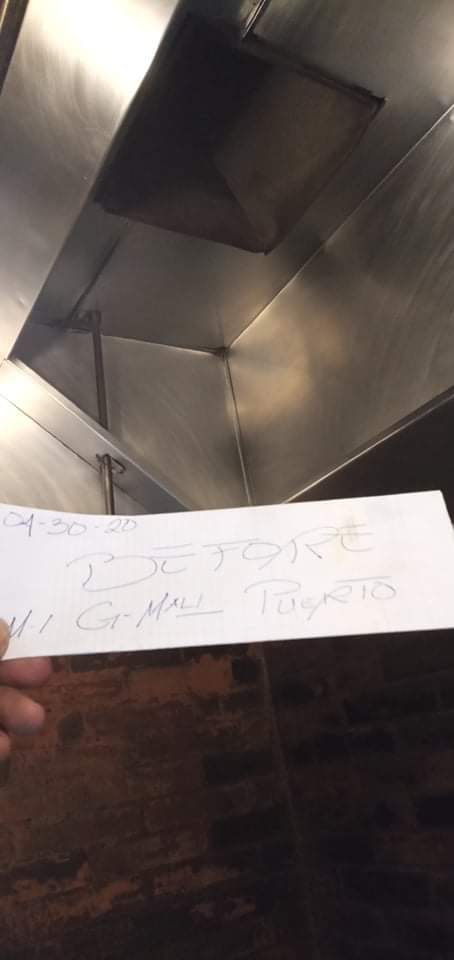 04-30-20
BEFORE
M-1 G-MALI PUERTO